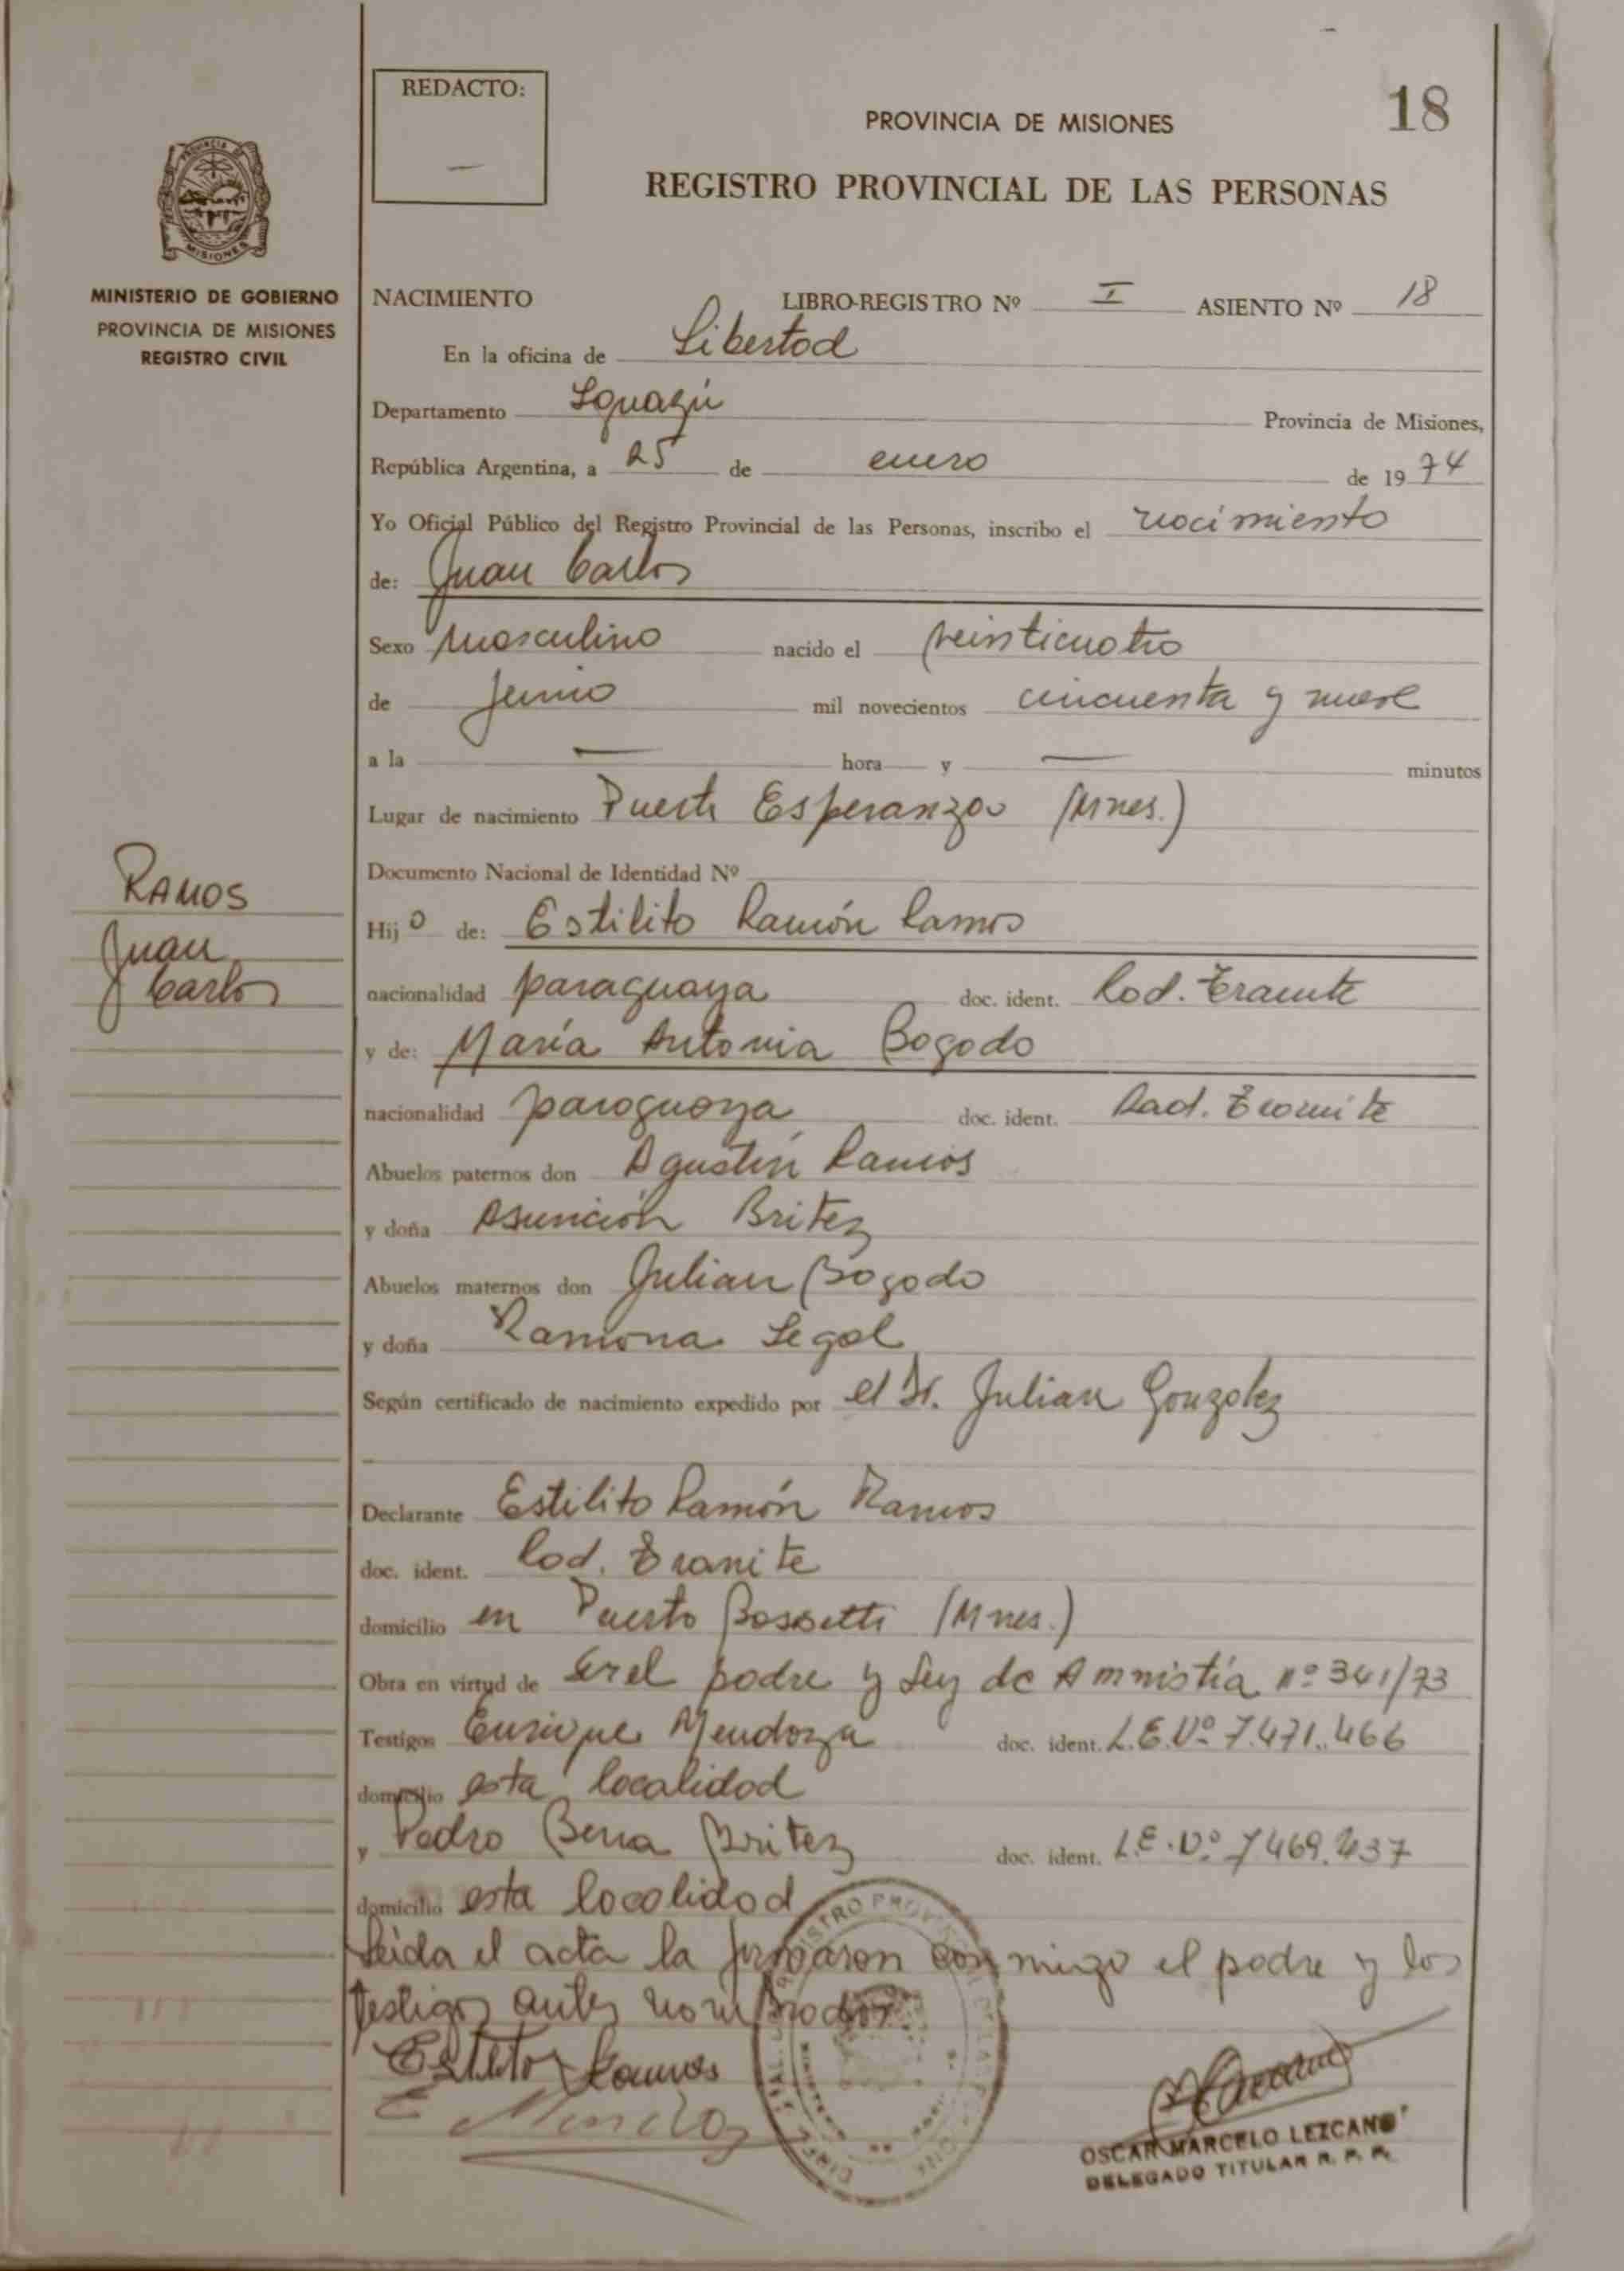 REDACTO:
18
PROVINCIA DE MISIONES
REGISTRO PROVINCIAL DE LAS PERSONAS
MINISTERIO DE GOBIERNO
PROVINCIA DE MISIONES
REGISTRO CIVIL
NACIMIENTO LIBRO-REGISTRO Nº I ASIENTO Nº 18
En la oficina de Libertad
Departamento Iguazú Provincia de Misiones,
República Argentina, a 25 de enero de 1974
Yo Oficial Público del Registro Provincial de las Personas, inscribo el nacimiento
de: Juan Carlos
Sexo masculino nacido el veinticuatro
de Junio mil novecientos cincuenta y nueve
a la — hora — y — minutos
Lugar de nacimiento Puerto Esperanza (Mnes.)
Documento Nacional de Identidad Nº
RAMOS
Juan
Carlos
Hijo de: Estilito Ramón Ramos
nacionalidad paraguaya doc. ident. Rad. Tramite
y de: María Antonia Bogado
nacionalidad paraguaya doc. ident. Rad. Tramite
Abuelos paternos don Agustín Ramos
y doña Asunción Britez
Abuelos maternos don Julian Bogado
y doña Ramona Legal
Según certificado de nacimiento expedido por el Dr. Julian Gonzalez
Declarante Estilito Ramón Ramos
doc. ident. Rad. Tramite
domicilio en Puerto Bossetti (Mnes.)
Obra en virtud de ser el padre y Ley de Amnistía nº 341/73
Testigos Enrique Mendoza doc. ident. L.E.Nº 7.471.466
domicilio esta localidad
y Pedro Britez doc. ident. L.E.Nº 7469.437
domicilio esta localidad
Leida el acta la firmaron conmigo el padre y los
testigos antes nombrados
Estilito Ramos
E Mendoz
OSCAR MARCELO LEZCANO
DELEGADO TITULAR R. P. P.